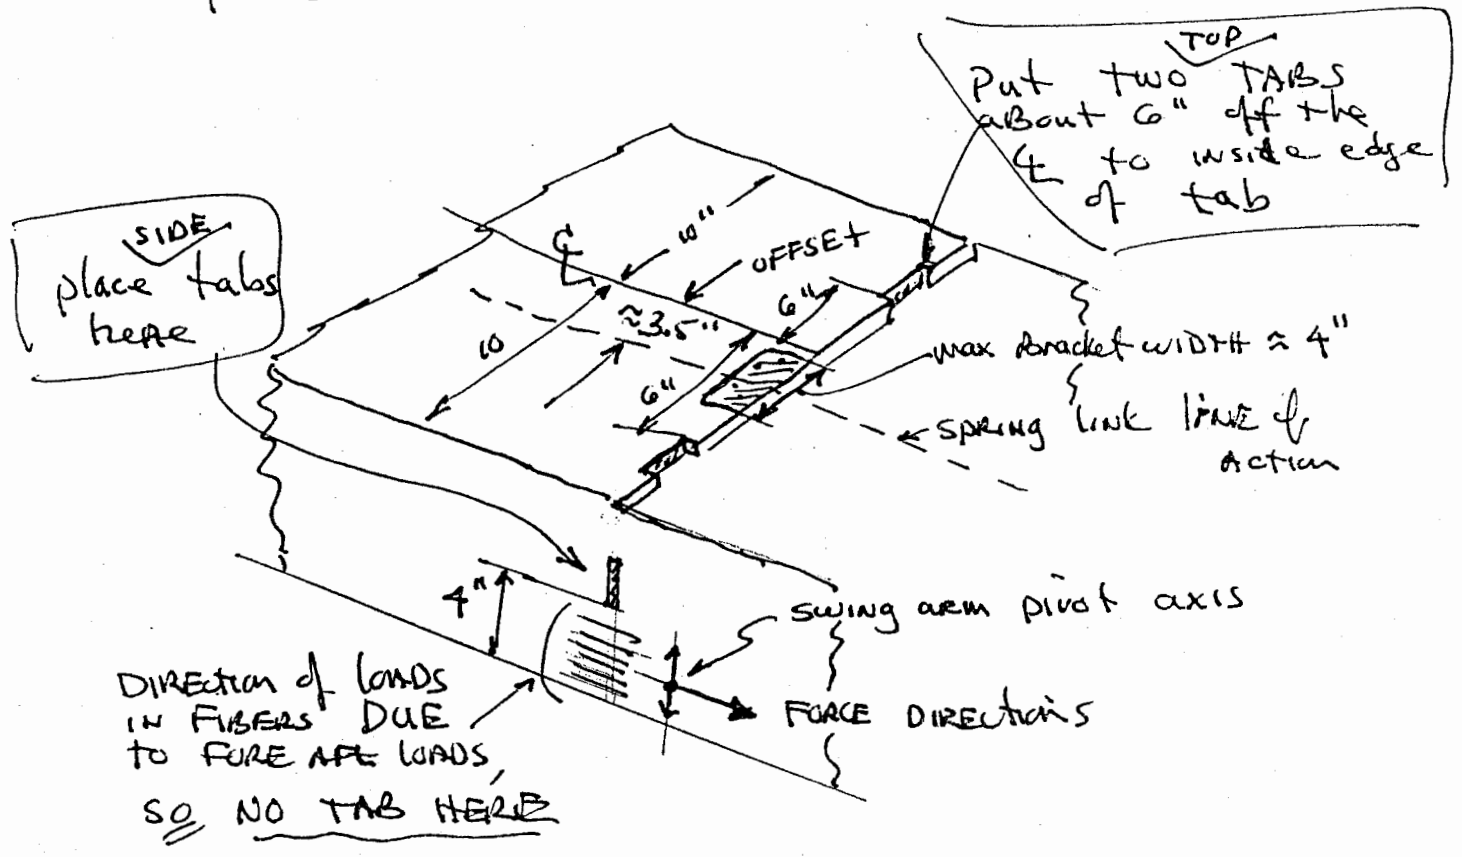 TOP
Put two TABS
about 6" off the
℄ to inside edge
of tab
SIDE
place tabs
here
℄
10"
OFFSET
6"
≈3.5"
10
6"
max bracket WIDTH ≈ 4"
SPRING LINK LINE of
Action
4"
SWING ARM pivot axis
DIRECTION of LOADS
IN FIBERS DUE
to FORE AFt LOADS,
SO NO TAB HERE
FORCE DIRECTIONS